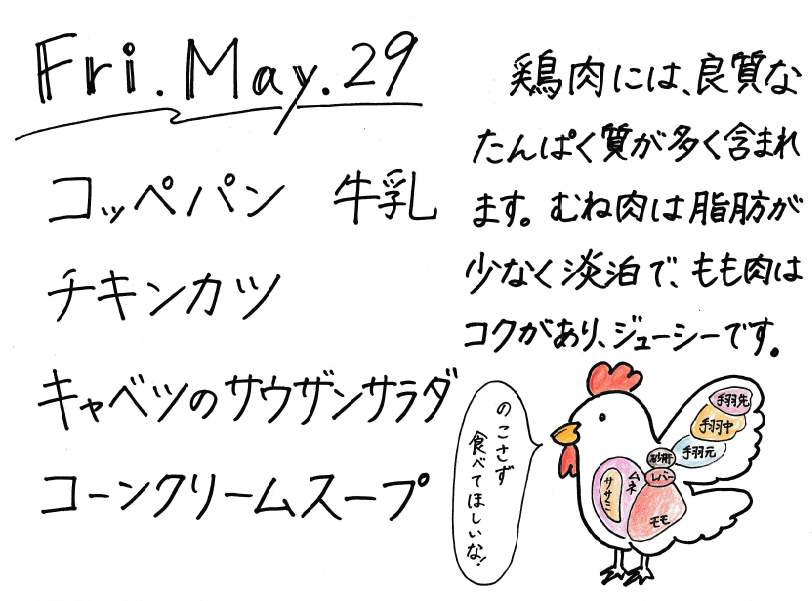 Fri. May. 29
コッペパン 牛乳
チキンカツ
キャベツのサウザンサラダ
コーンクリームスープ
鶏肉には、良質な
たんぱく質が多く含まれ
ます。むね肉は脂肪が
少なく淡泊で、もも肉は
コクがあり、ジューシーです。
のこさず
食べてほしいな!
手羽先
手羽中
手羽元
砂肝
レバー
ムネ
ササミ
モモ